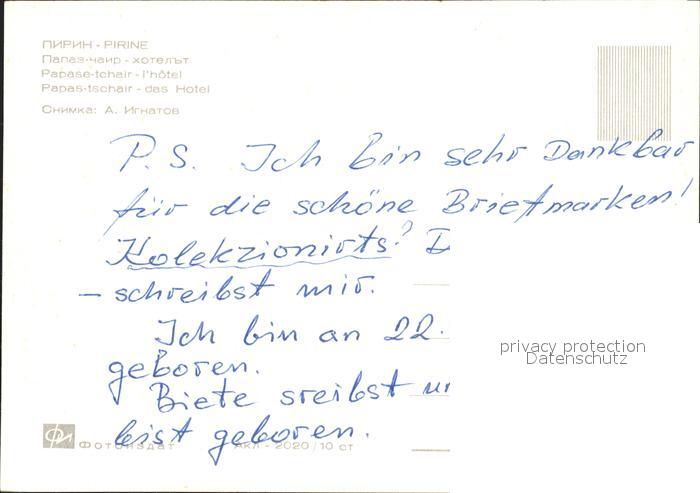 ПИРИН - PIRINE
Папаз-чаир - хотелът
Papase-tchair - l'hôtel
Papas-tschair - das Hotel
Снимка: А. Игнатов
P.S. Ich bin sehr Dankbar
für die schöne Briefmarken!
Kolekzionirts?
– schreibst mir.
Ich bin an 22.
geboren.
privacy protection
Datenschutz
Biete sreibst
bist geboren.
Фотоиздат АКЛ - 2020/10 ст